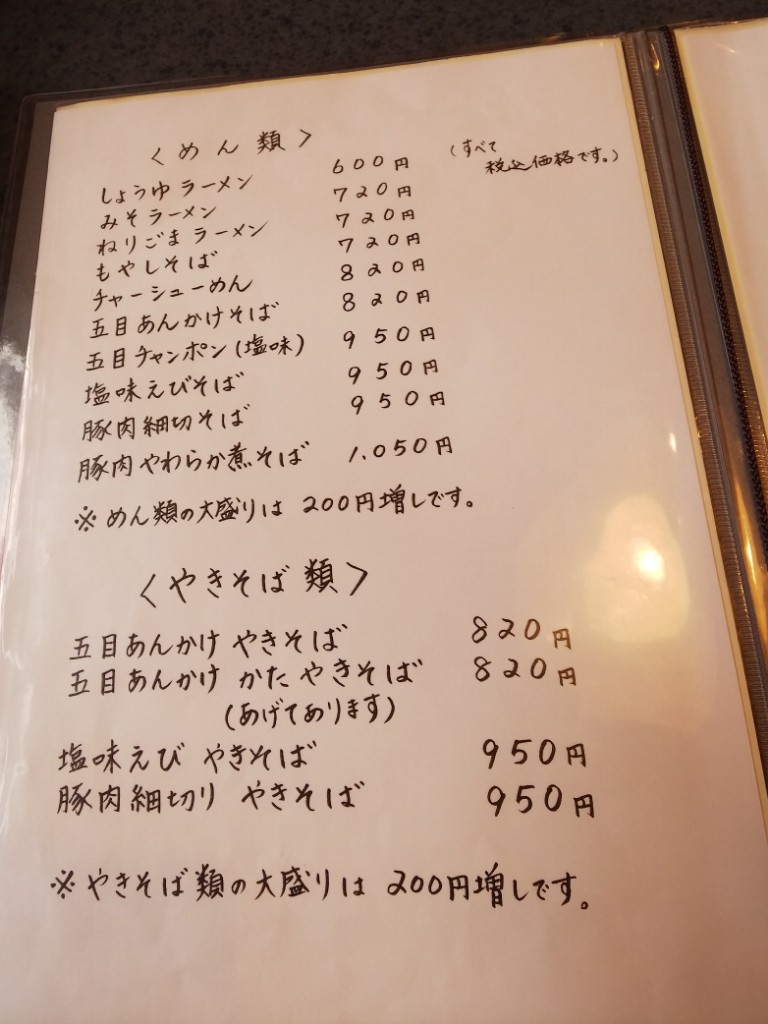 〈めん類〉
(すべて
税込価格です。)
しょうゆラーメン 600円
みそラーメン 720円
ねりごまラーメン 720円
もやしそば 720円
チャーシューめん 820円
五目あんかけそば 820円
五目チャンポン(塩味) 950円
塩味えびそば 950円
豚肉細切そば 950円
豚肉やわらか煮そば 1,050円
※めん類の大盛りは 200円増しです。
〈やきそば類〉
五目あんかけ やきそば 820円
五目あんかけ かた やきそば 820円
(あげてあります)
塩味えび やきそば 950円
豚肉細切り やきそば 950円
※やきそば類の大盛りは 200円増しです。